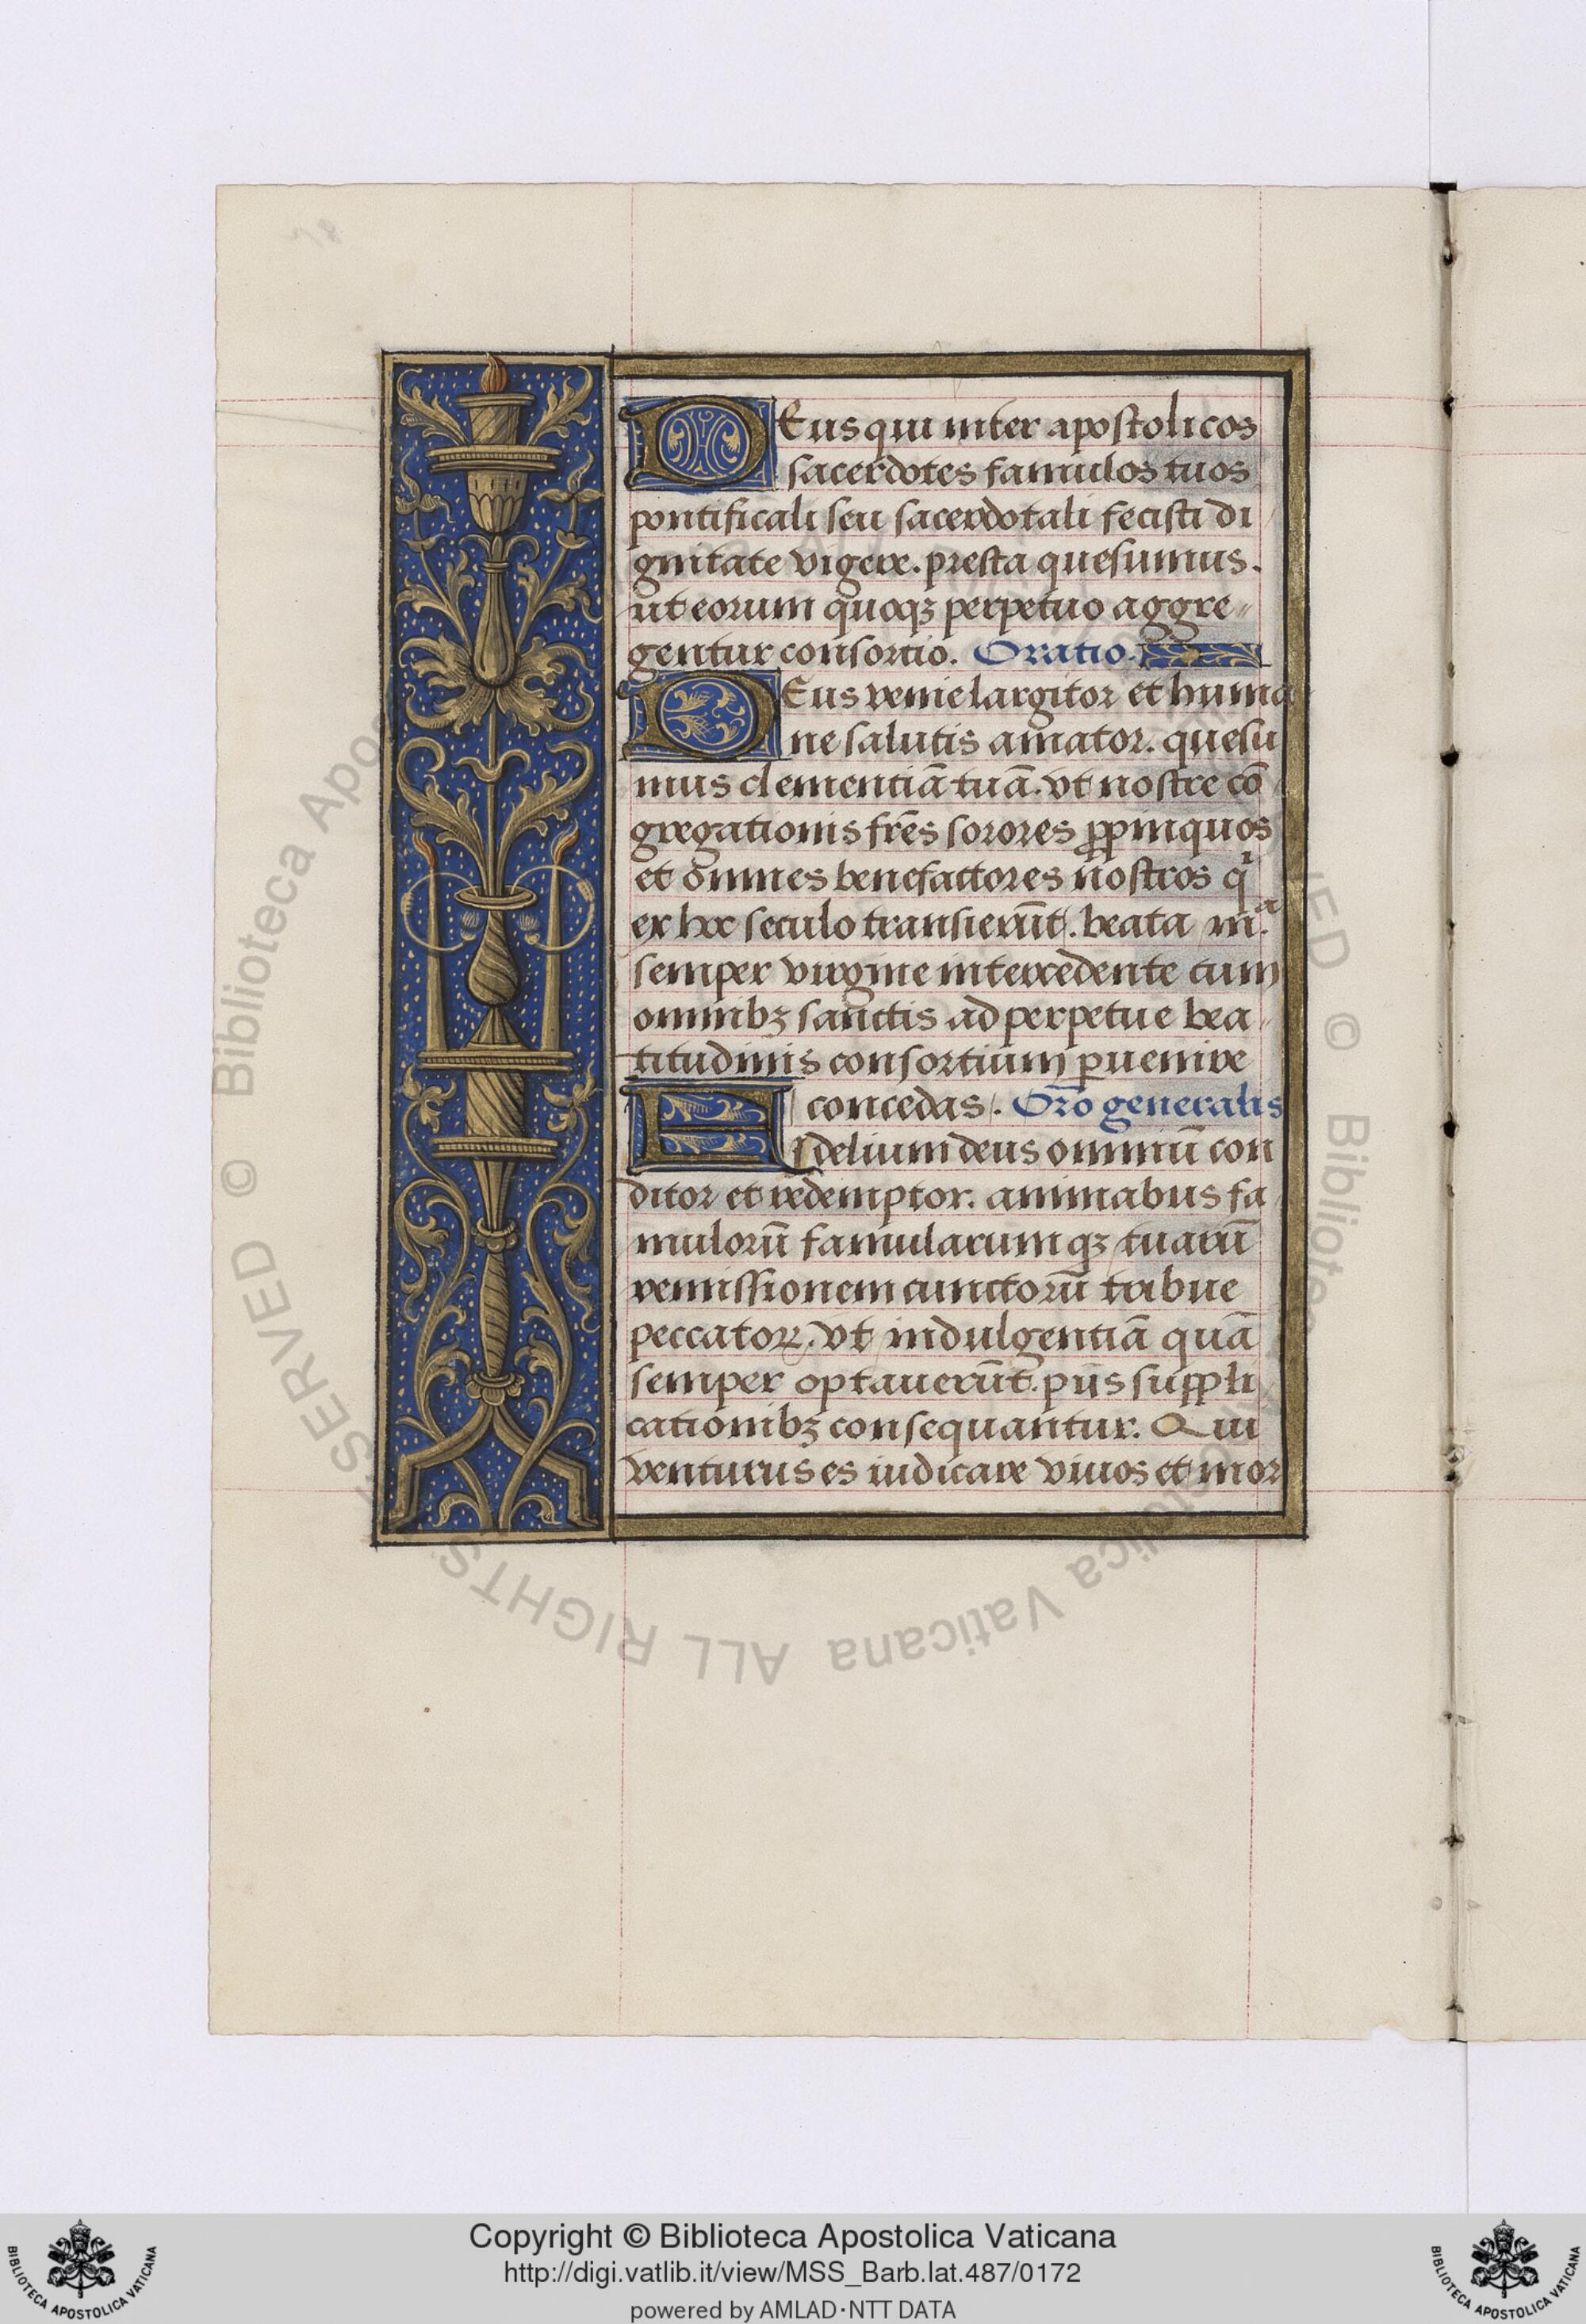 DEus qui inter apostolicos
sacerdotes famulos tuos
pontificali seu sacerdotali fecisti di
gnitate vigere. presta quesumus.
ut eorum quoqꝫ perpetuo aggre〃
gentur consortio. Oratio.
DEus venie largitor et huma
ne salutis amator. quesu
mus clementiā tuā. vt nostre cō
gregationis fr̄es sorores ꝓpinquos
et omnes benefactores nostros qͥ
ex hoc seculo transierūt. beata mͣ.
semper virgine intercedente cum
omnibꝫ sanctis ad perpetue bea
titudinis consortium ꝑuenire
concedas. Or̄o generalis
Fidelium deus omniū con
ditor et redemptor. animabus fa
mulorū famularum qꝫ tuarū
remissionem cunctorū tribue
peccatoꝝ. vt indulgentiā quā
semper optauerūt. piis suppli
cationibꝫ consequantur. Qui
venturus es iudicare viuos et mor
© Biblioteca Apostolica Vaticana ALL RIGHTS RESERVED © Biblioteca Apo
Copyright © Biblioteca Apostolica Vaticana
http://digi.vatlib.it/view/MSS_Barb.lat.487/0172
powered by AMLAD·NTT DATA
BIBLIOTECA APOSTOLICA VATICANA
BIBLIOTECA APOSTOLICA VATICANA